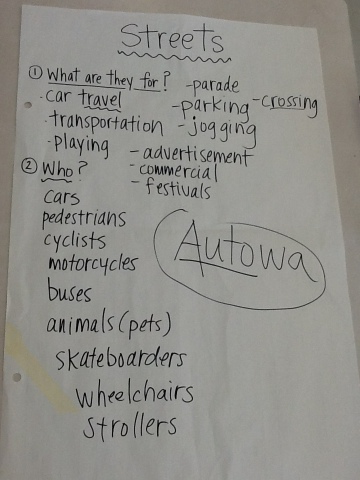 Streets
① What are they for?
- car travel
- transportation
- playing
- parade
- parking - crossing
- jogging
- advertisement
- commercial
- festivals
② Who?
cars
pedestrians
cyclists
motorcycles
buses
animals (pets)
skateboarders
wheelchairs
strollers
Autowa